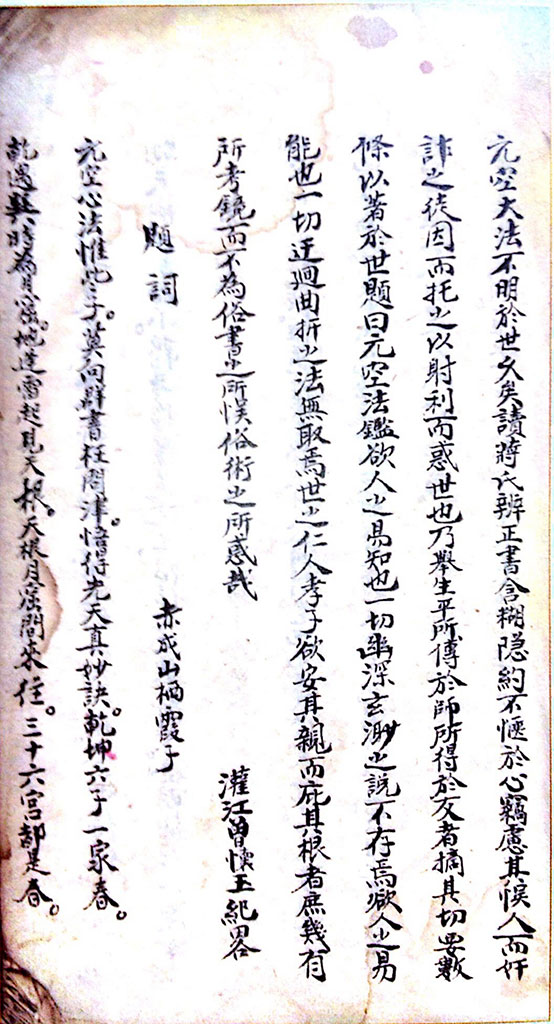 元空大法不明於世久矣讀蔣氏辨正書含糊隠約不愜於心竊慮其悞人而奸
詐之徒因而托之以射利而惑世也乃舉生平所傳於師所得於友者摘其切要數
條以著於世題曰元空法鑑欲人之易知也一切幽深玄渺之說不存焉欲人之易
能也一切迂廻曲折之法無取焉世之仁人孝子欲安其親而庇其根者庶幾有
所考鏡而不為俗書之所悞俗術之所惑哉
灌江曾懷玉紀畧
題詞
赤成山栖霞子
元空心法惟些子。莫向群書枉問津悟得先天真妙訣。乾坤六子一家春。
乾遇巽時為月窟。地逢雷起見天根。天根月窟間來往。三十六宮都是春。